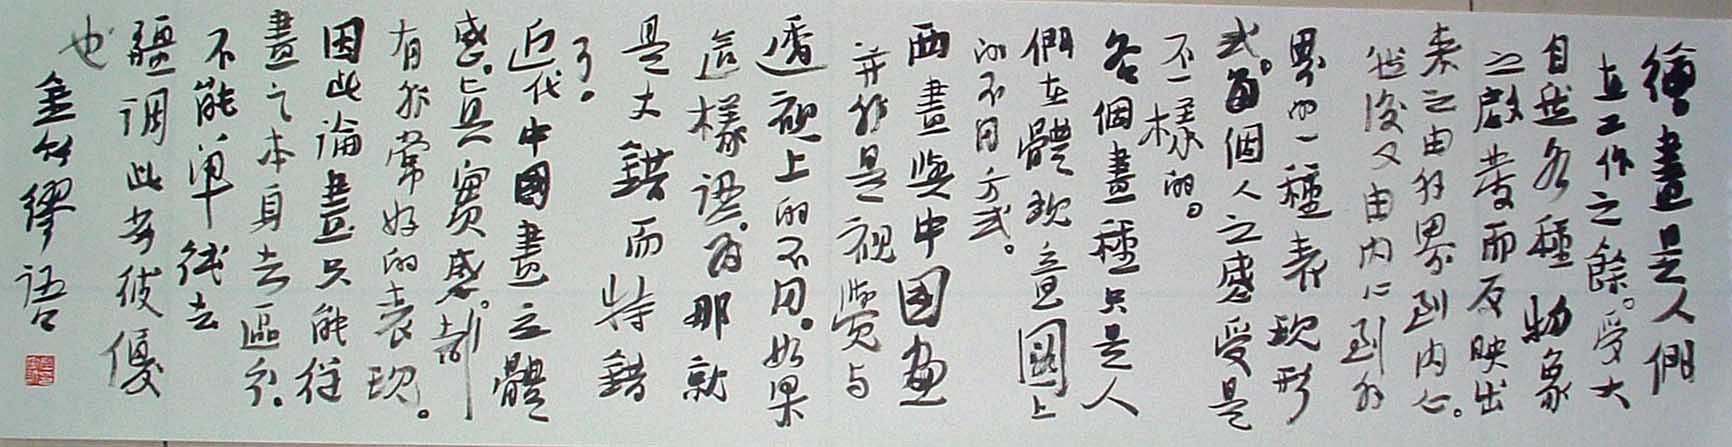 繪畫是人們
在工作之餘。受大
自然各種物象
之啟發而反映出
来之由外界到内心。
然後又由内心到外
界的一種表現形
式。每個人之感受是
不一樣的。
各個畫種只是人
們在體現意圖上
的不同方式。
西畫與中國画
并非是視覺与
透視上的不同。如果
這樣認爲那就
是大錯而特錯
了。
近代中國畫立體
感。真實感。都
有非常好的表現。
因此論畫只能從
畫之本身去區分。
不能單純去
疆調此與彼優
也
金竹繆语